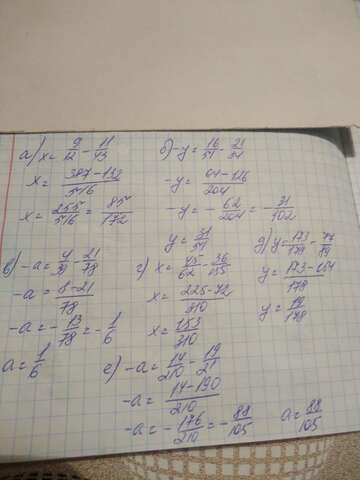 а) x = 9/12 - 11/43
x = 387-132/516
x = 255/516 = 85/172
б) -y = 16/51 - 21/34
-y = 64-126/204
-y = - 62/204 = - 31/102
y = 31/51
в) -a = 4/39 - 21/78
-a = 8-21/78
-a = - 13/78 = - 1/6
a = 1/6
г) x = 45/62 - 36/155
x = 225-72/310
x = 153/310
д) y = 173/178 - 77/89
y = 173-154/178
y = 19/178
е) -a = 14/210 - 19/21
-a = 14-190/210
-a = - 176/210 = - 88/105
a = 88/105